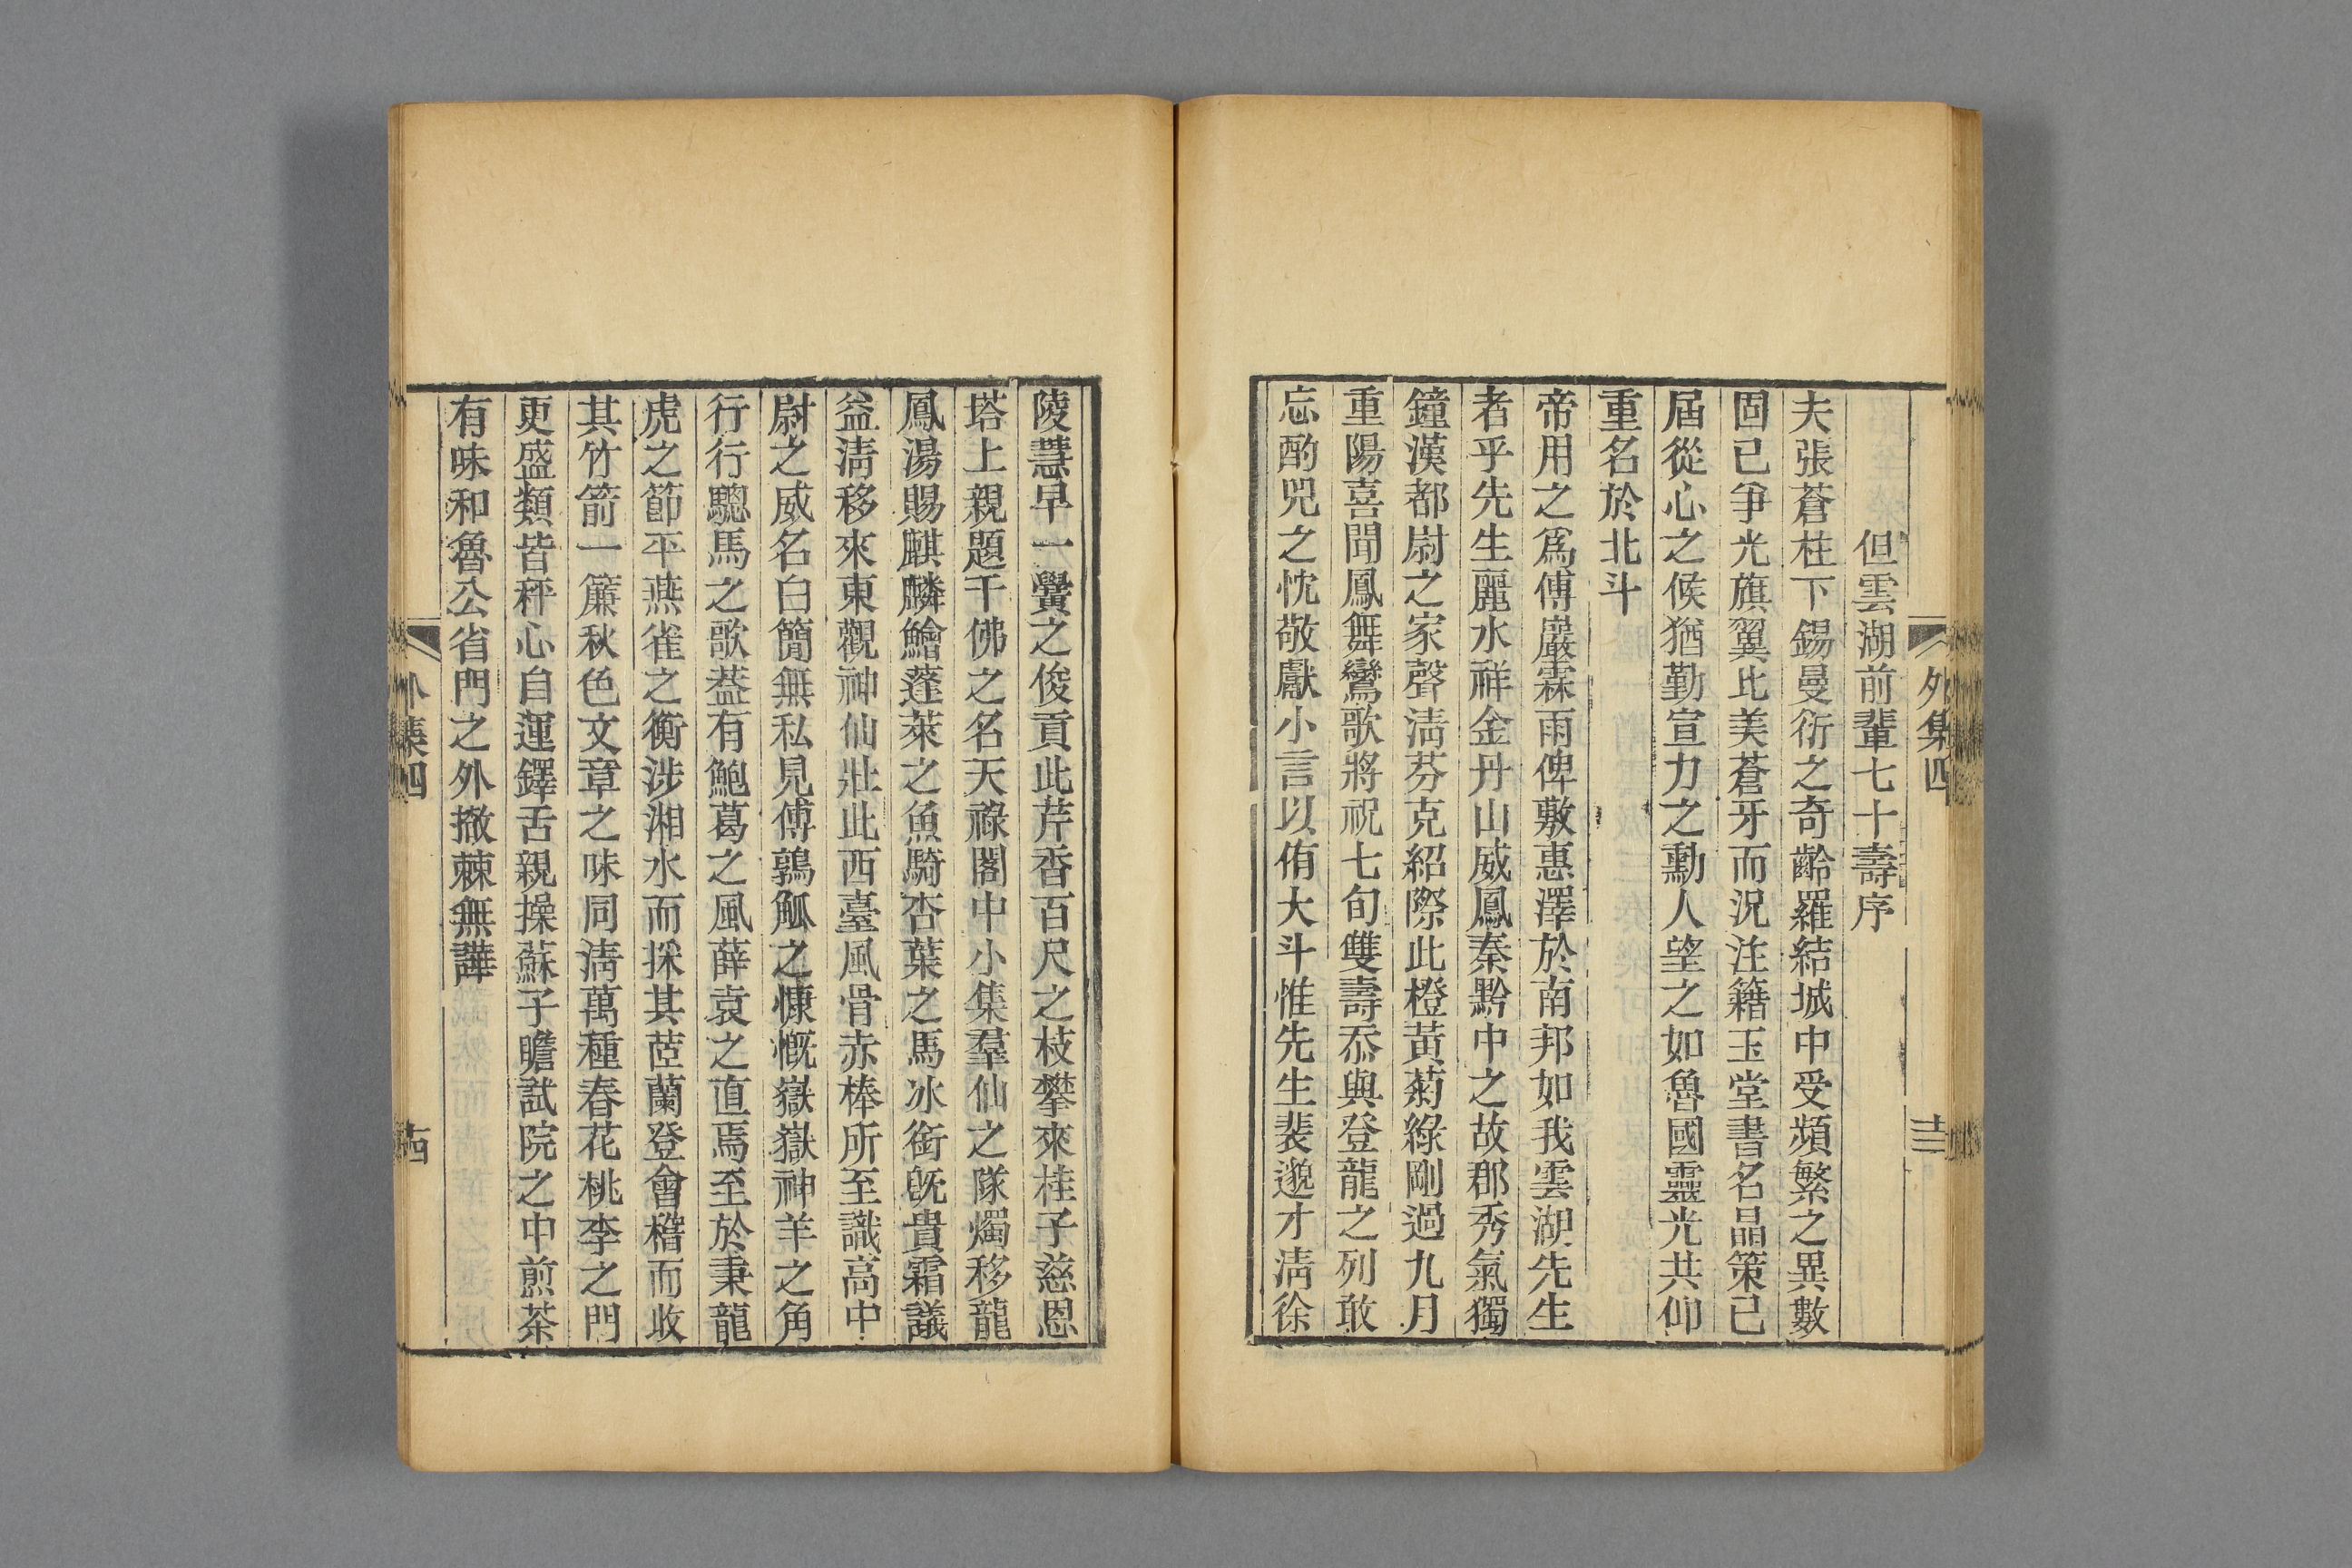 外集四
十三
但雲湖前輩七十壽序
夫張蒼柱下錫曼衍之奇齡羅結城中受頻繁之異數
固已爭光旗翼比美蒼牙而況注籍玉堂書名晶策已
屆從心之候猶勤宣力之勳人望之如魯國靈光共仰
重名於北斗
帝用之爲傅巖霖雨俾敷惠澤於南邦如我雲湖先生
者乎先生麗水祥金丹山威鳳秦黔中之故郡秀氣獨
鐘漢都尉之家聲淸芬克紹際此橙黃菊綠剛過九月
重陽喜聞鳳舞鸞歌將祝七旬雙壽忝與登龍之列敢
忘酌兕之忱敬獻小言以侑大斗惟先生裴邈才淸徐
陵慧早一黌之俊貢此芹香百尺之枝攀來桂子慈恩
塔上親題千佛之名天祿閣中小集羣仙之隊燭移龍
鳳湯賜麒麟鱠蓬萊之魚騎杏葉之馬冰銜旣貴霜議
益淸移來東觀神仙壯此西臺風骨赤棒所至識高中
尉之威名白簡無私見傅鶉觚之慷慨嶽嶽神羊之角
行行驄馬之歌葢有鮑葛之風薛袁之直焉至於秉龍
虎之節平燕雀之衡涉湘水而採其茝蘭登會稽而收
其竹箭一簾秋色文章之味同淸萬種春花桃李之門
更盛類皆秤心自運鐸舌親操蘇子瞻試院之中煎茶
有味和魯公省門之外撤棘無譁
外集四
十四